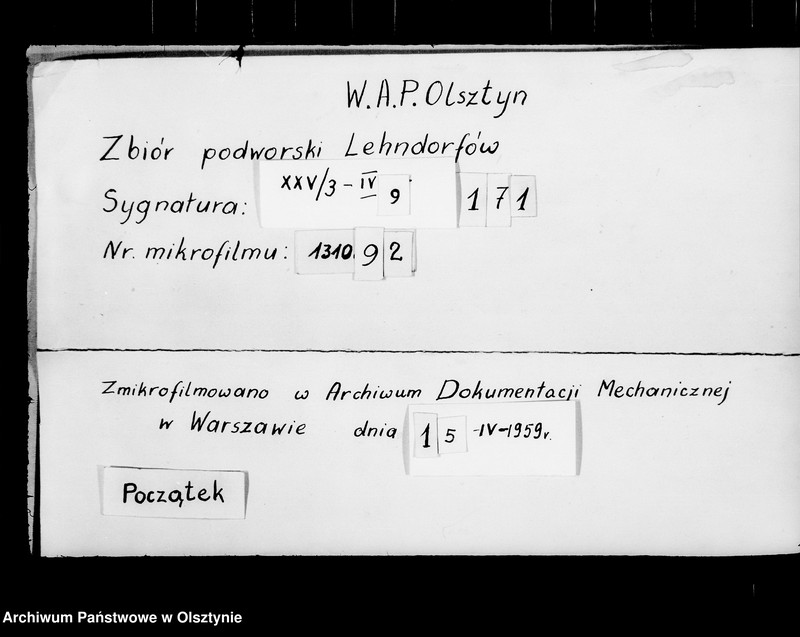 W.A.P. Olsztyn
Zbiór podworski Lehndorfów
Sygnatura: XXV/3 - IV 9 171
Nr. mikrofilmu: 1310. 92
Zmikrofilmowano w Archiwum Dokumentacji Mechanicznej
w Warszawie dnia 15 -IV-1959r.
Początek
Archiwum Państwowe w Olsztynie